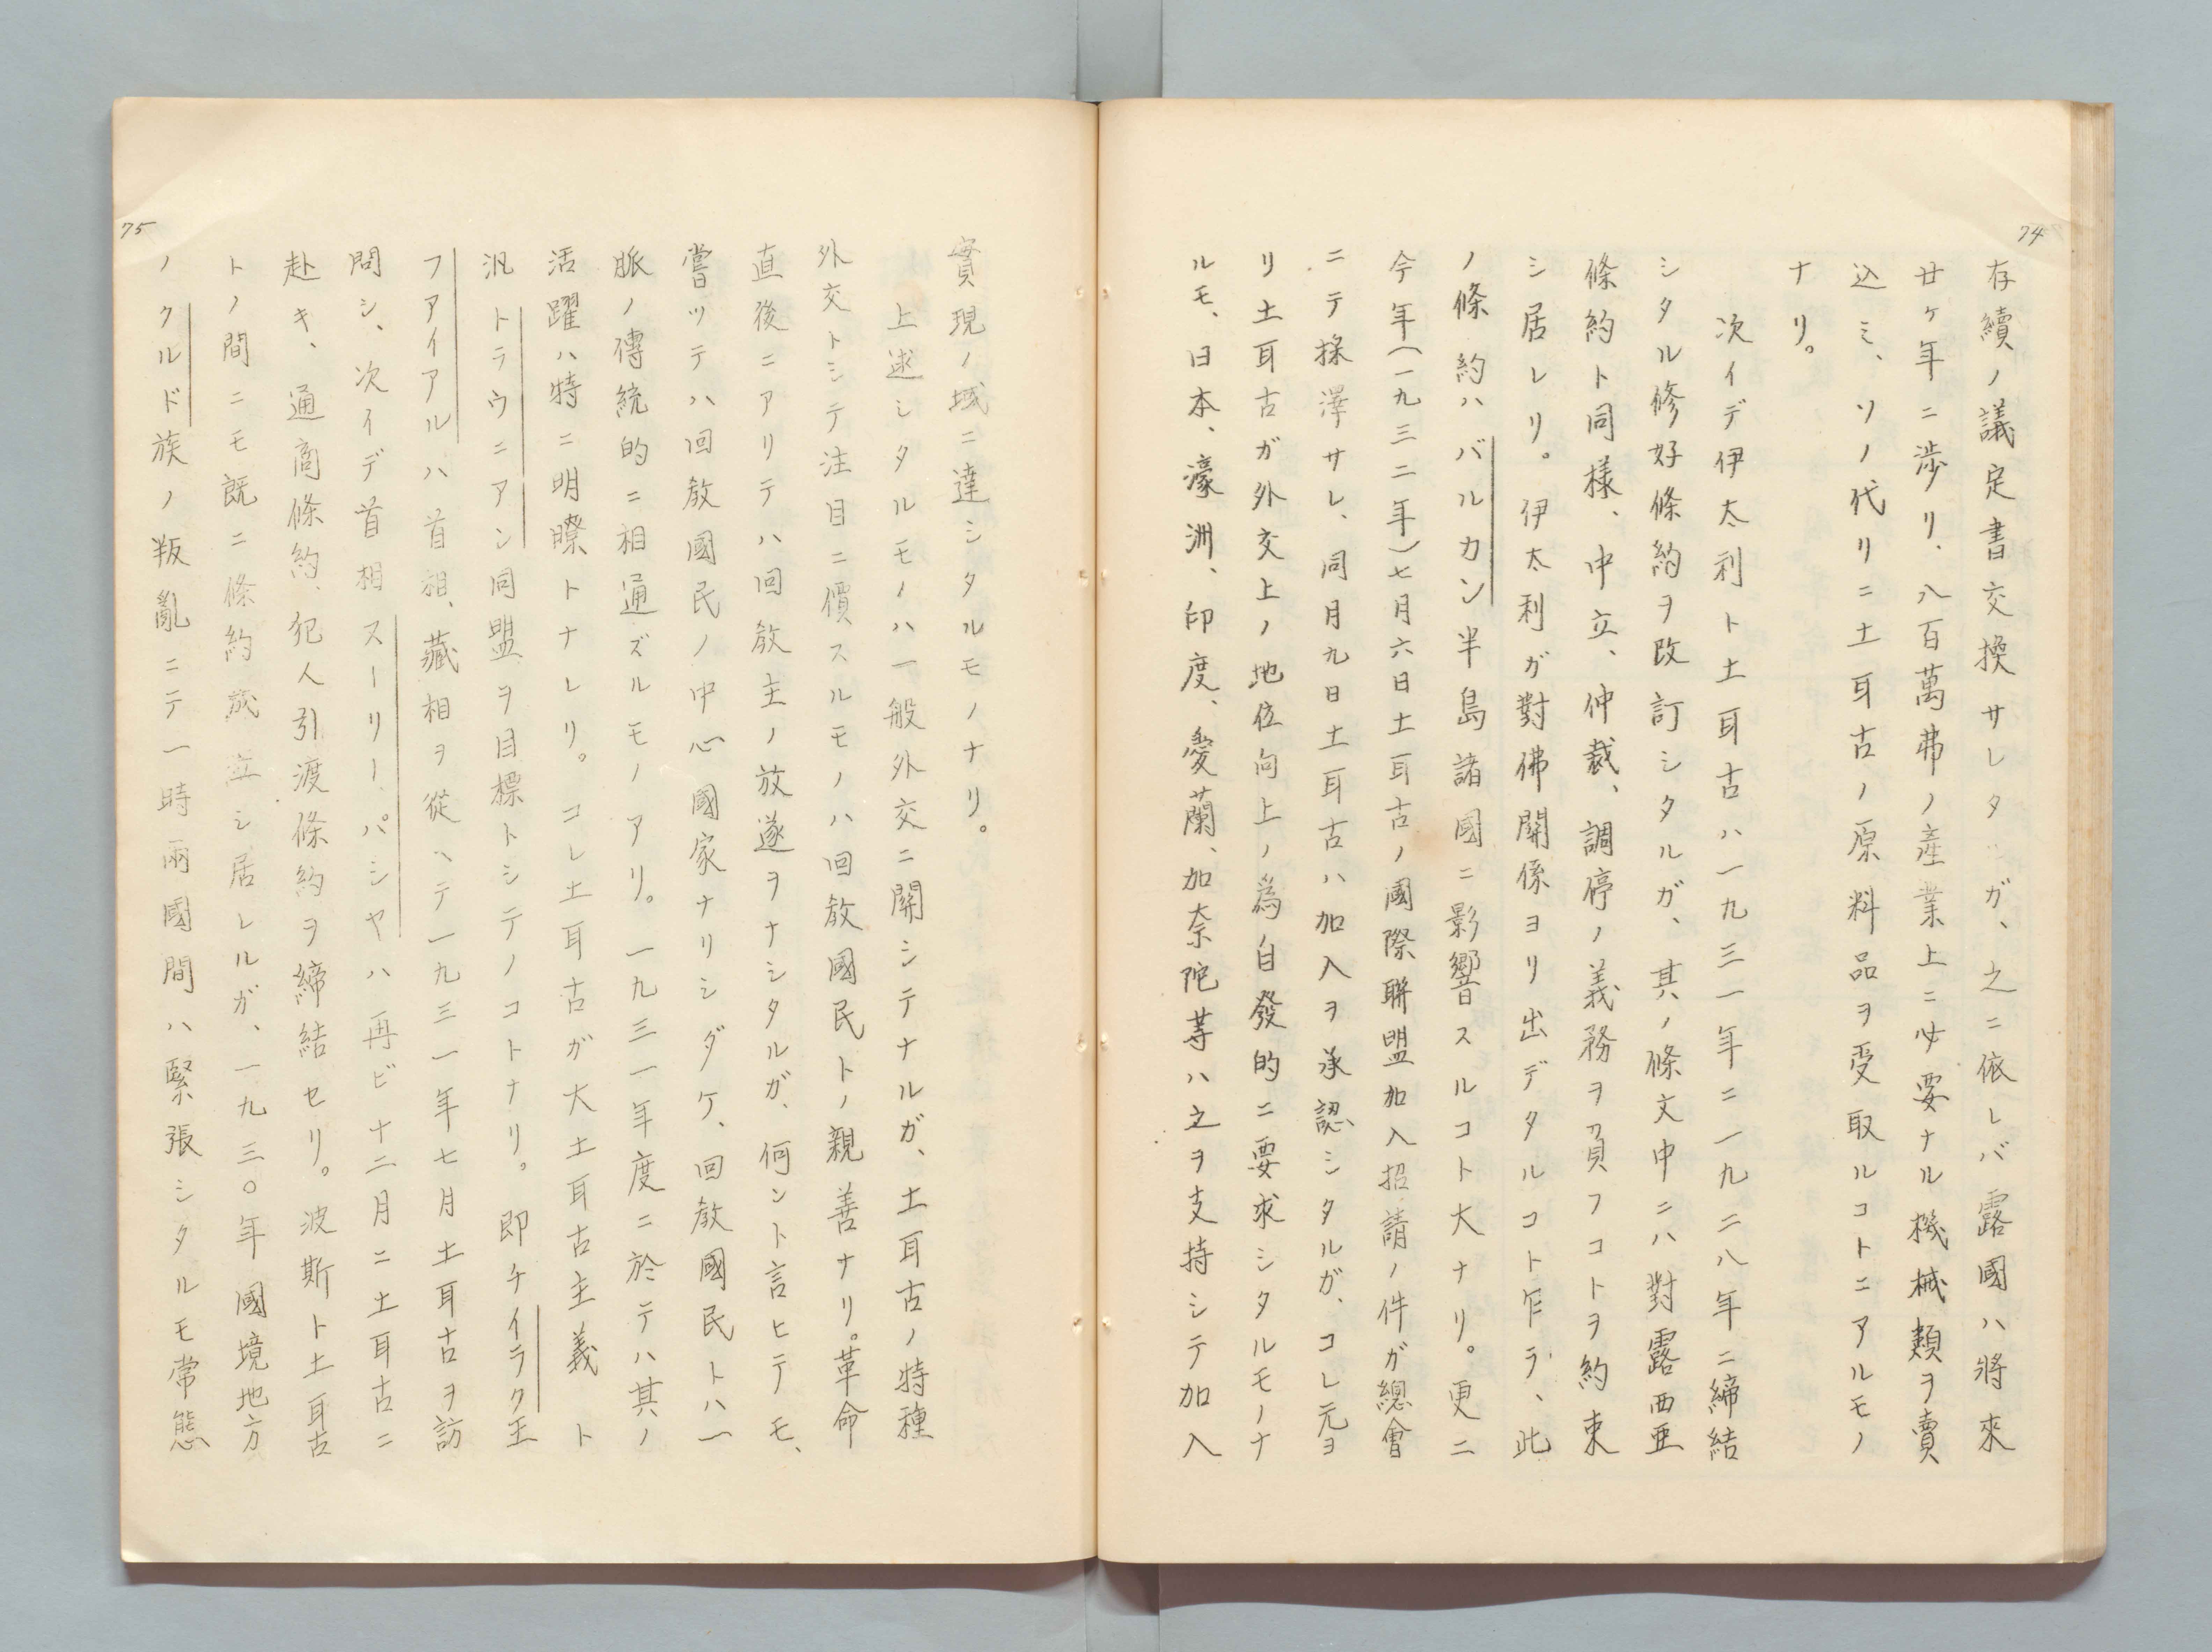 74
存續ノ議定書交換サレタガ、之ニ依レバ露國ハ將來
廿ケ年ニ渉リ、八百萬弗ノ產業上ニ必要ナル機械類ヲ賣
込ミ、ソノ代リニ土耳古ノ原料品ヲ受取ルコトニアルモノ
ナリ。
次イデ伊太利ト土耳古ハ一九三一年ニ一九二八年ニ締結
シタル修好條約ヲ改訂シタルガ、其ノ條文中ニハ對露西亜
條約ト同樣、中立、仲裁、調停ノ義務ヲ負フコトヲ約束
シ居レリ。伊太利ガ對佛關係ヨリ出デタルコト乍ラ、此
ノ條約ハバルカン半島諸國ニ影響スルコト大ナリ。更ニ
今年(一九三二年)七月六日土耳古ノ國際聯盟加入招請ノ件ガ總會
ニテ採澤サレ、同月九日土耳古ハ加入ヲ承認シタルガ、コレ元ヨ
リ土耳古ガ外交上ノ地位向上ノ為自發的ニ要求シタルモノナ
ルモ、日本、濠洲、印度、愛蘭、加奈陀等ハ之ヲ支持シテ加入
實現ノ域ニ達シタルモノナリ。
上述シタルモノハ一般外交ニ關シテナルガ、土耳古ノ特種
外交トシテ注目ニ價スルモノハ回敎國民トノ親善ナリ。革命
直後ニアリテハ回敎主ノ放逐ヲナシタルガ、何ント言ヒテモ、
嘗ッテハ回敎國民ノ中心國家ナリシダケ、回敎國民トハ一
脈ノ傳統的ニ相通ズルモノアリ。一九三一年度ニ於テハ其ノ
活躍ハ特ニ明瞭トナレリ。コレ土耳古ガ大土耳古主義ト
汎トラウニアン同盟ヲ目標トシテノコトナリ。即チイラク王
フアイアルハ首相、藏相ヲ從ヘテ一九三一年七月土耳古ヲ訪
問シ、次イデ首相スーリー、パシヤハ再ビ十二月ニ土耳古ニ
赴キ、通商條約、犯人引渡條約ヲ締結セリ。波斯ト土耳古
トノ間ニモ既ニ條約成立シ居レルガ、一九三〇年國境地方
ノクルド族ノ叛亂ニテ一時兩國間ハ緊張シタルモ常態
75